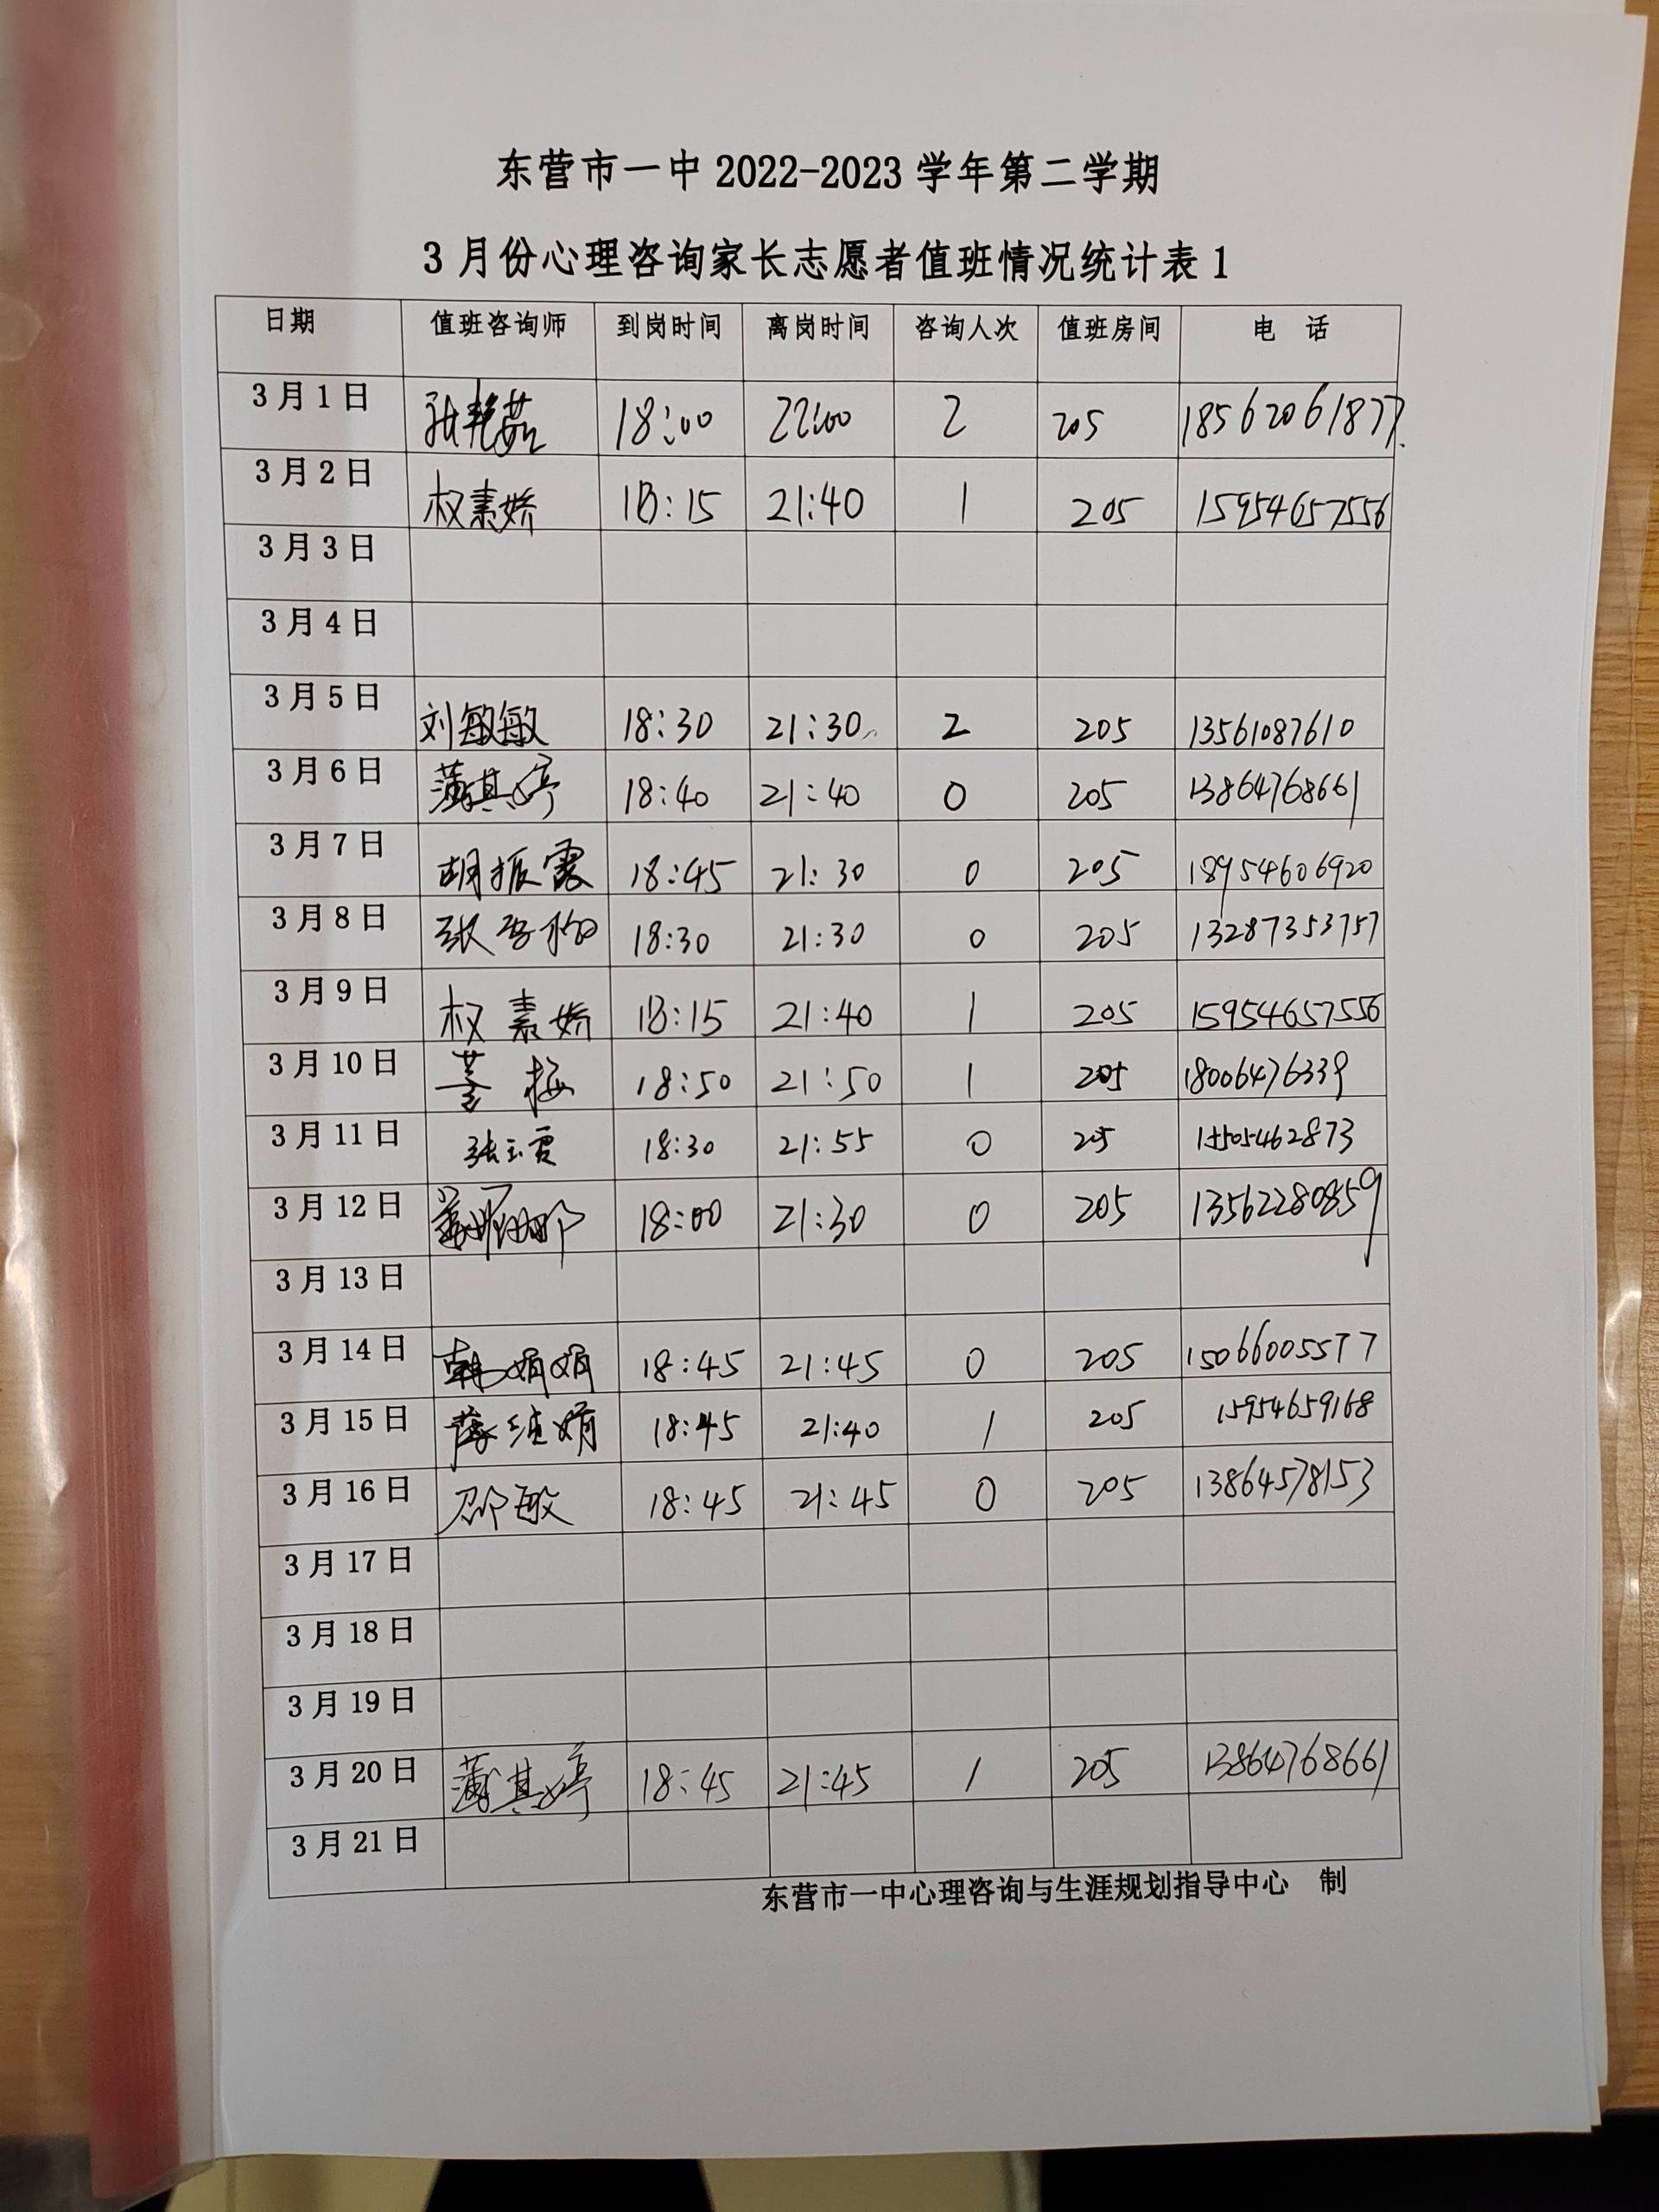 东营市一中 2022-2023 学年第二学期
3 月份心理咨询家长志愿者值班情况统计表 1
日期 值班咨询师 到岗时间 离岗时间 咨询人次 值班房间 电 话
3 月 1 日 张艳茹 18:00 22:00 2 205 18562061877
3 月 2 日 权素娇 18:15 21:40 1 205 15954657556
3 月 3 日
3 月 4 日
3 月 5 日 刘敏敏 18:30 21:30 2 205 13561087610
3 月 6 日 蒲其婷 18:40 21:40 0 205 13864768661
3 月 7 日 胡振霞 18:45 21:30 0 205 18954606920
3 月 8 日 张 18:30 21:30 0 205 13287353757
3 月 9 日 权素娇 18:15 21:40 1 205 15954657556
3 月 10 日 董梅 18:50 21:50 1 205 18006476339
3 月 11 日 张玉霞 18:30 21:55 0 205 15505462873
3 月 12 日 18:00 21:30 0 205 13562280859
3 月 13 日
3 月 14 日 韩娟娟 18:45 21:45 0 205 15066005577
3 月 15 日 娟 18:45 21:40 1 205 15954659168
3 月 16 日 邵敏 18:45 21:45 0 205 13864578153
3 月 17 日
3 月 18 日
3 月 19 日
3 月 20 日 蒲其婷 18:45 21:45 1 205 13864768661
3 月 21 日
东营市一中心理咨询与生涯规划指导中心 制